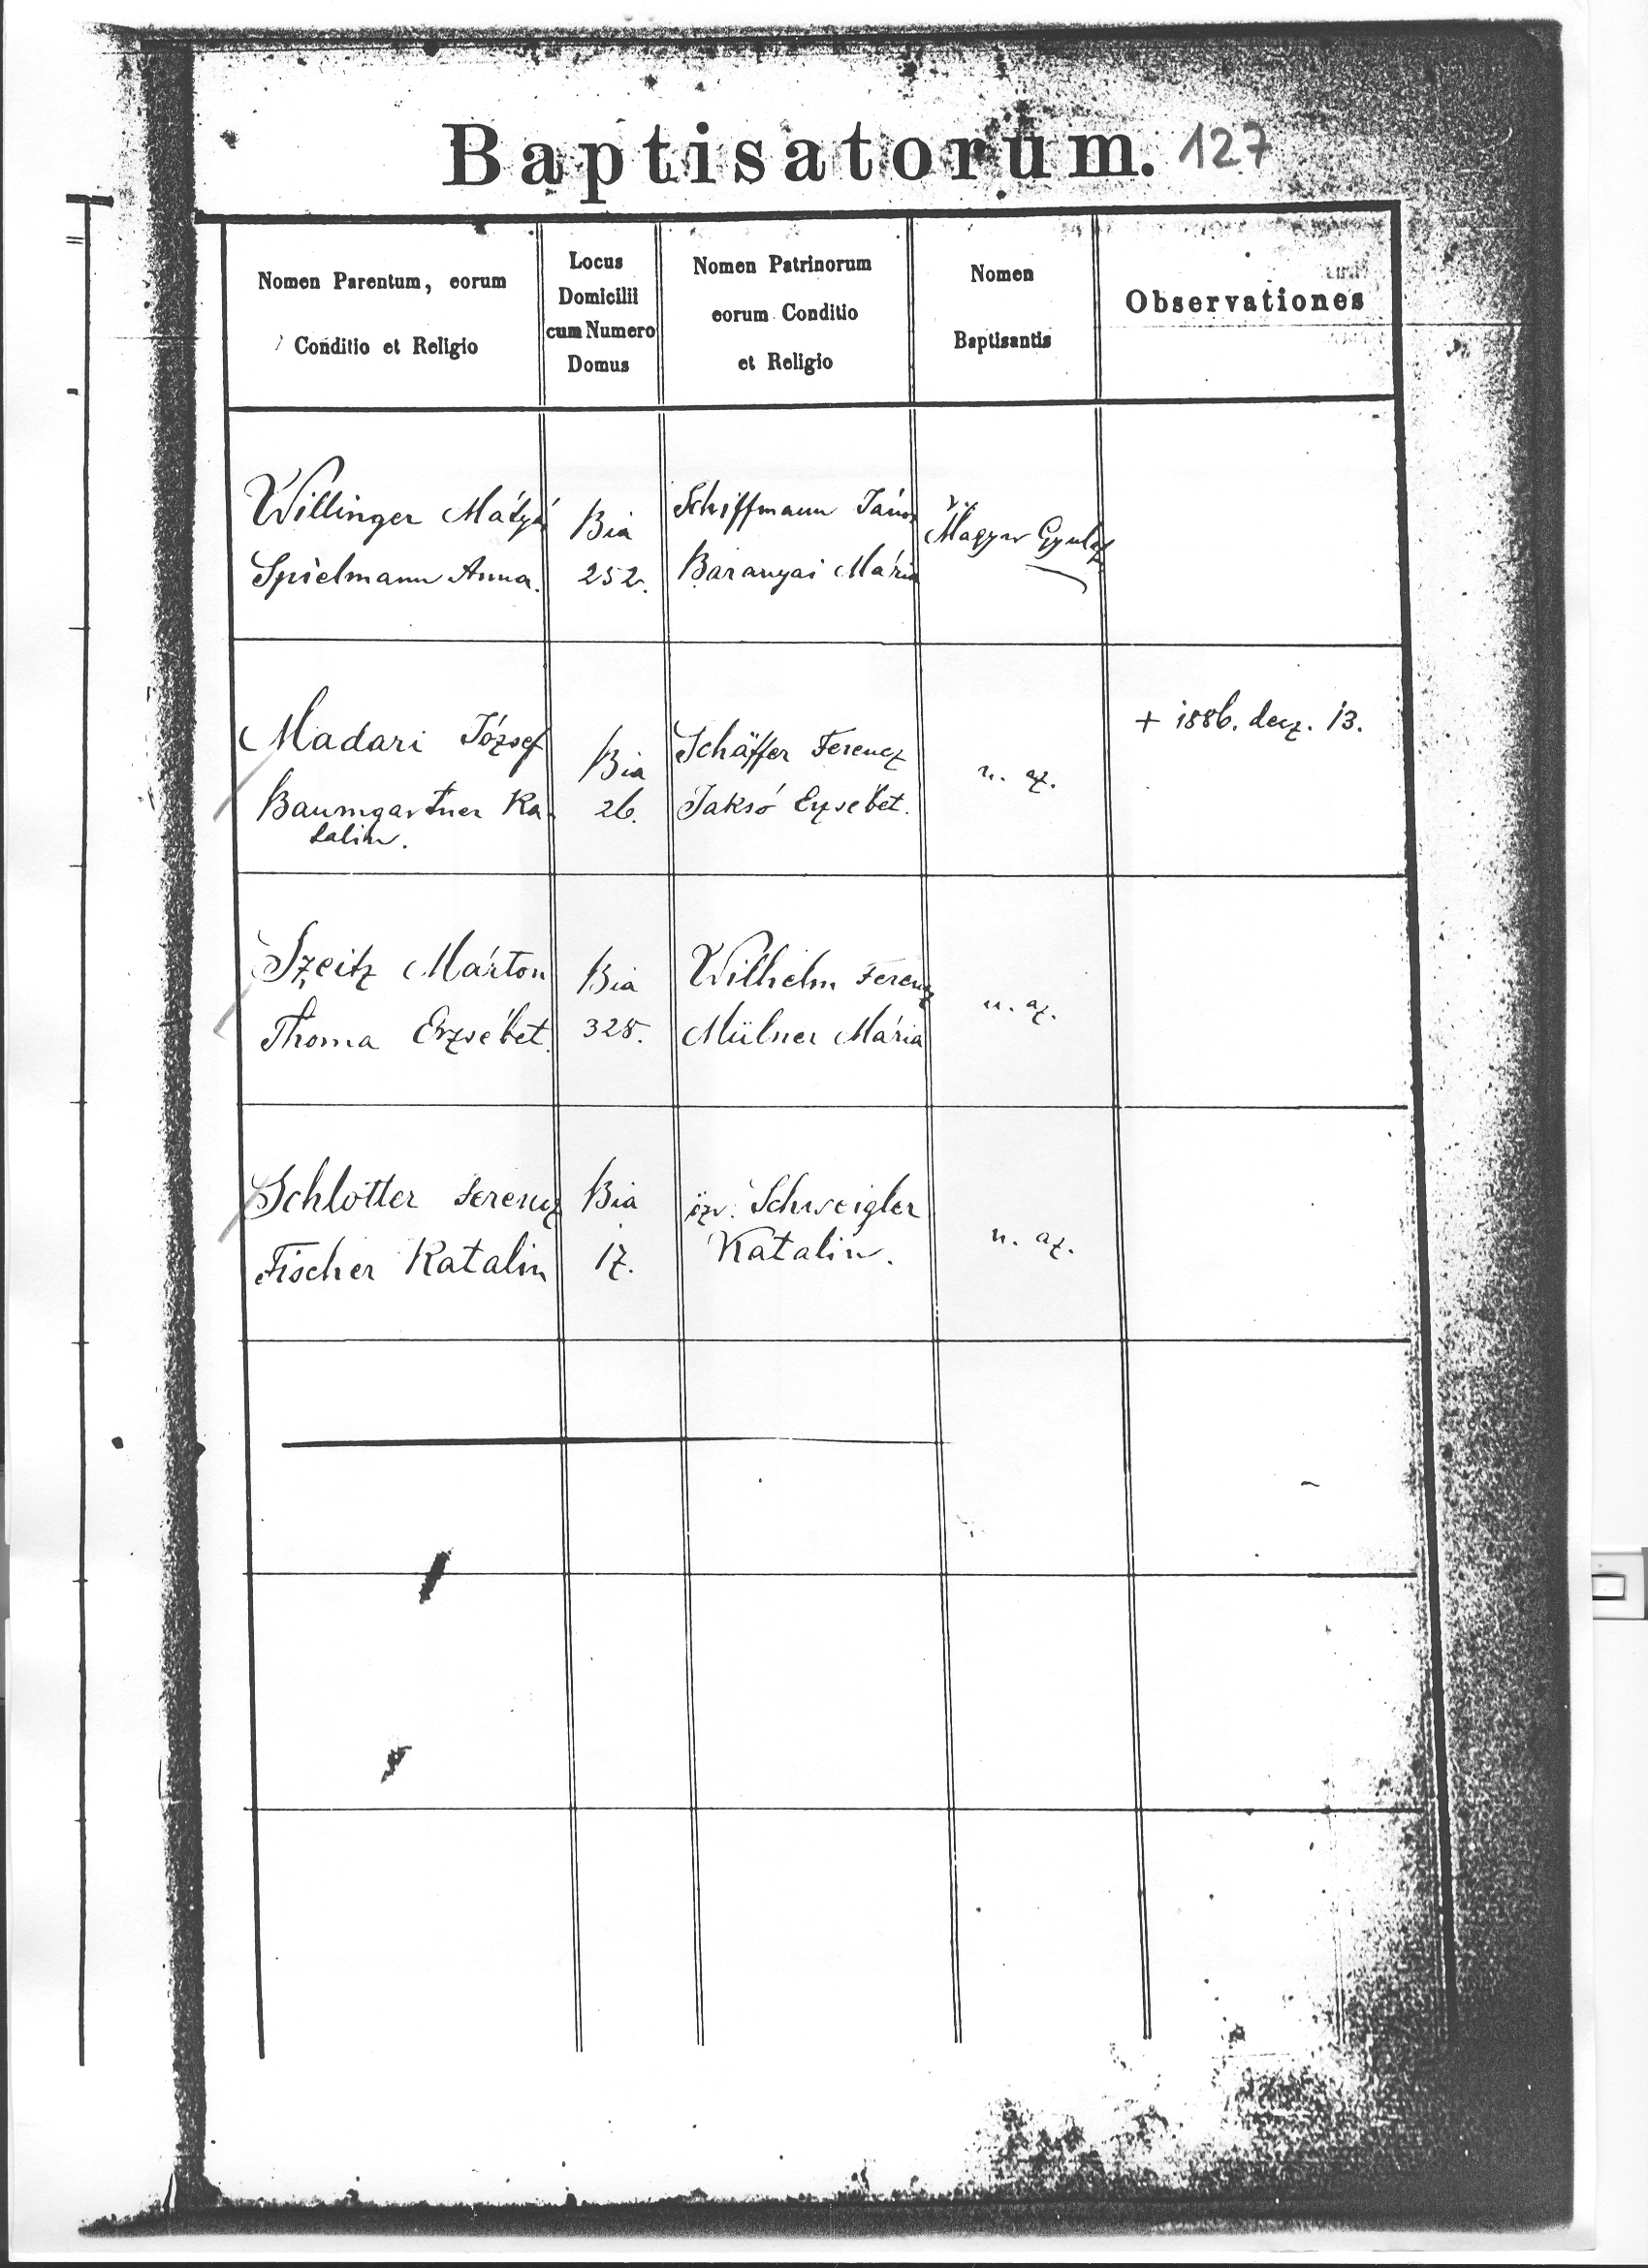 Baptisatorum. 127
Nomen Parentum, eorum
Conditio et Religio
Locus
Domicilii
cum Numero
Domus
Nomen Patrinorum
eorum Conditio
et Religio
Nomen
Baptisantis
Observationes
Willinger Mátyá
Spielmann Anna.
Bia
252.
Schiffmann János
Baranyai Mária
Magyar Gyula
Madari József
Baumgartner Ka-
talin.
Bia
26.
Schäffer Ferencz
Jaksó Erzsébet.
u. az.
+ 1886. decz. 13.
Szeitz Márton
Thoma Erzsébet.
Bia
328.
Wilhelm Ferencz
Mülner Mária
u. az.
Schlotter Ferencz
Fischer Katalin
Bia
17.
özv. Schweigler
Katalin.
u. az.